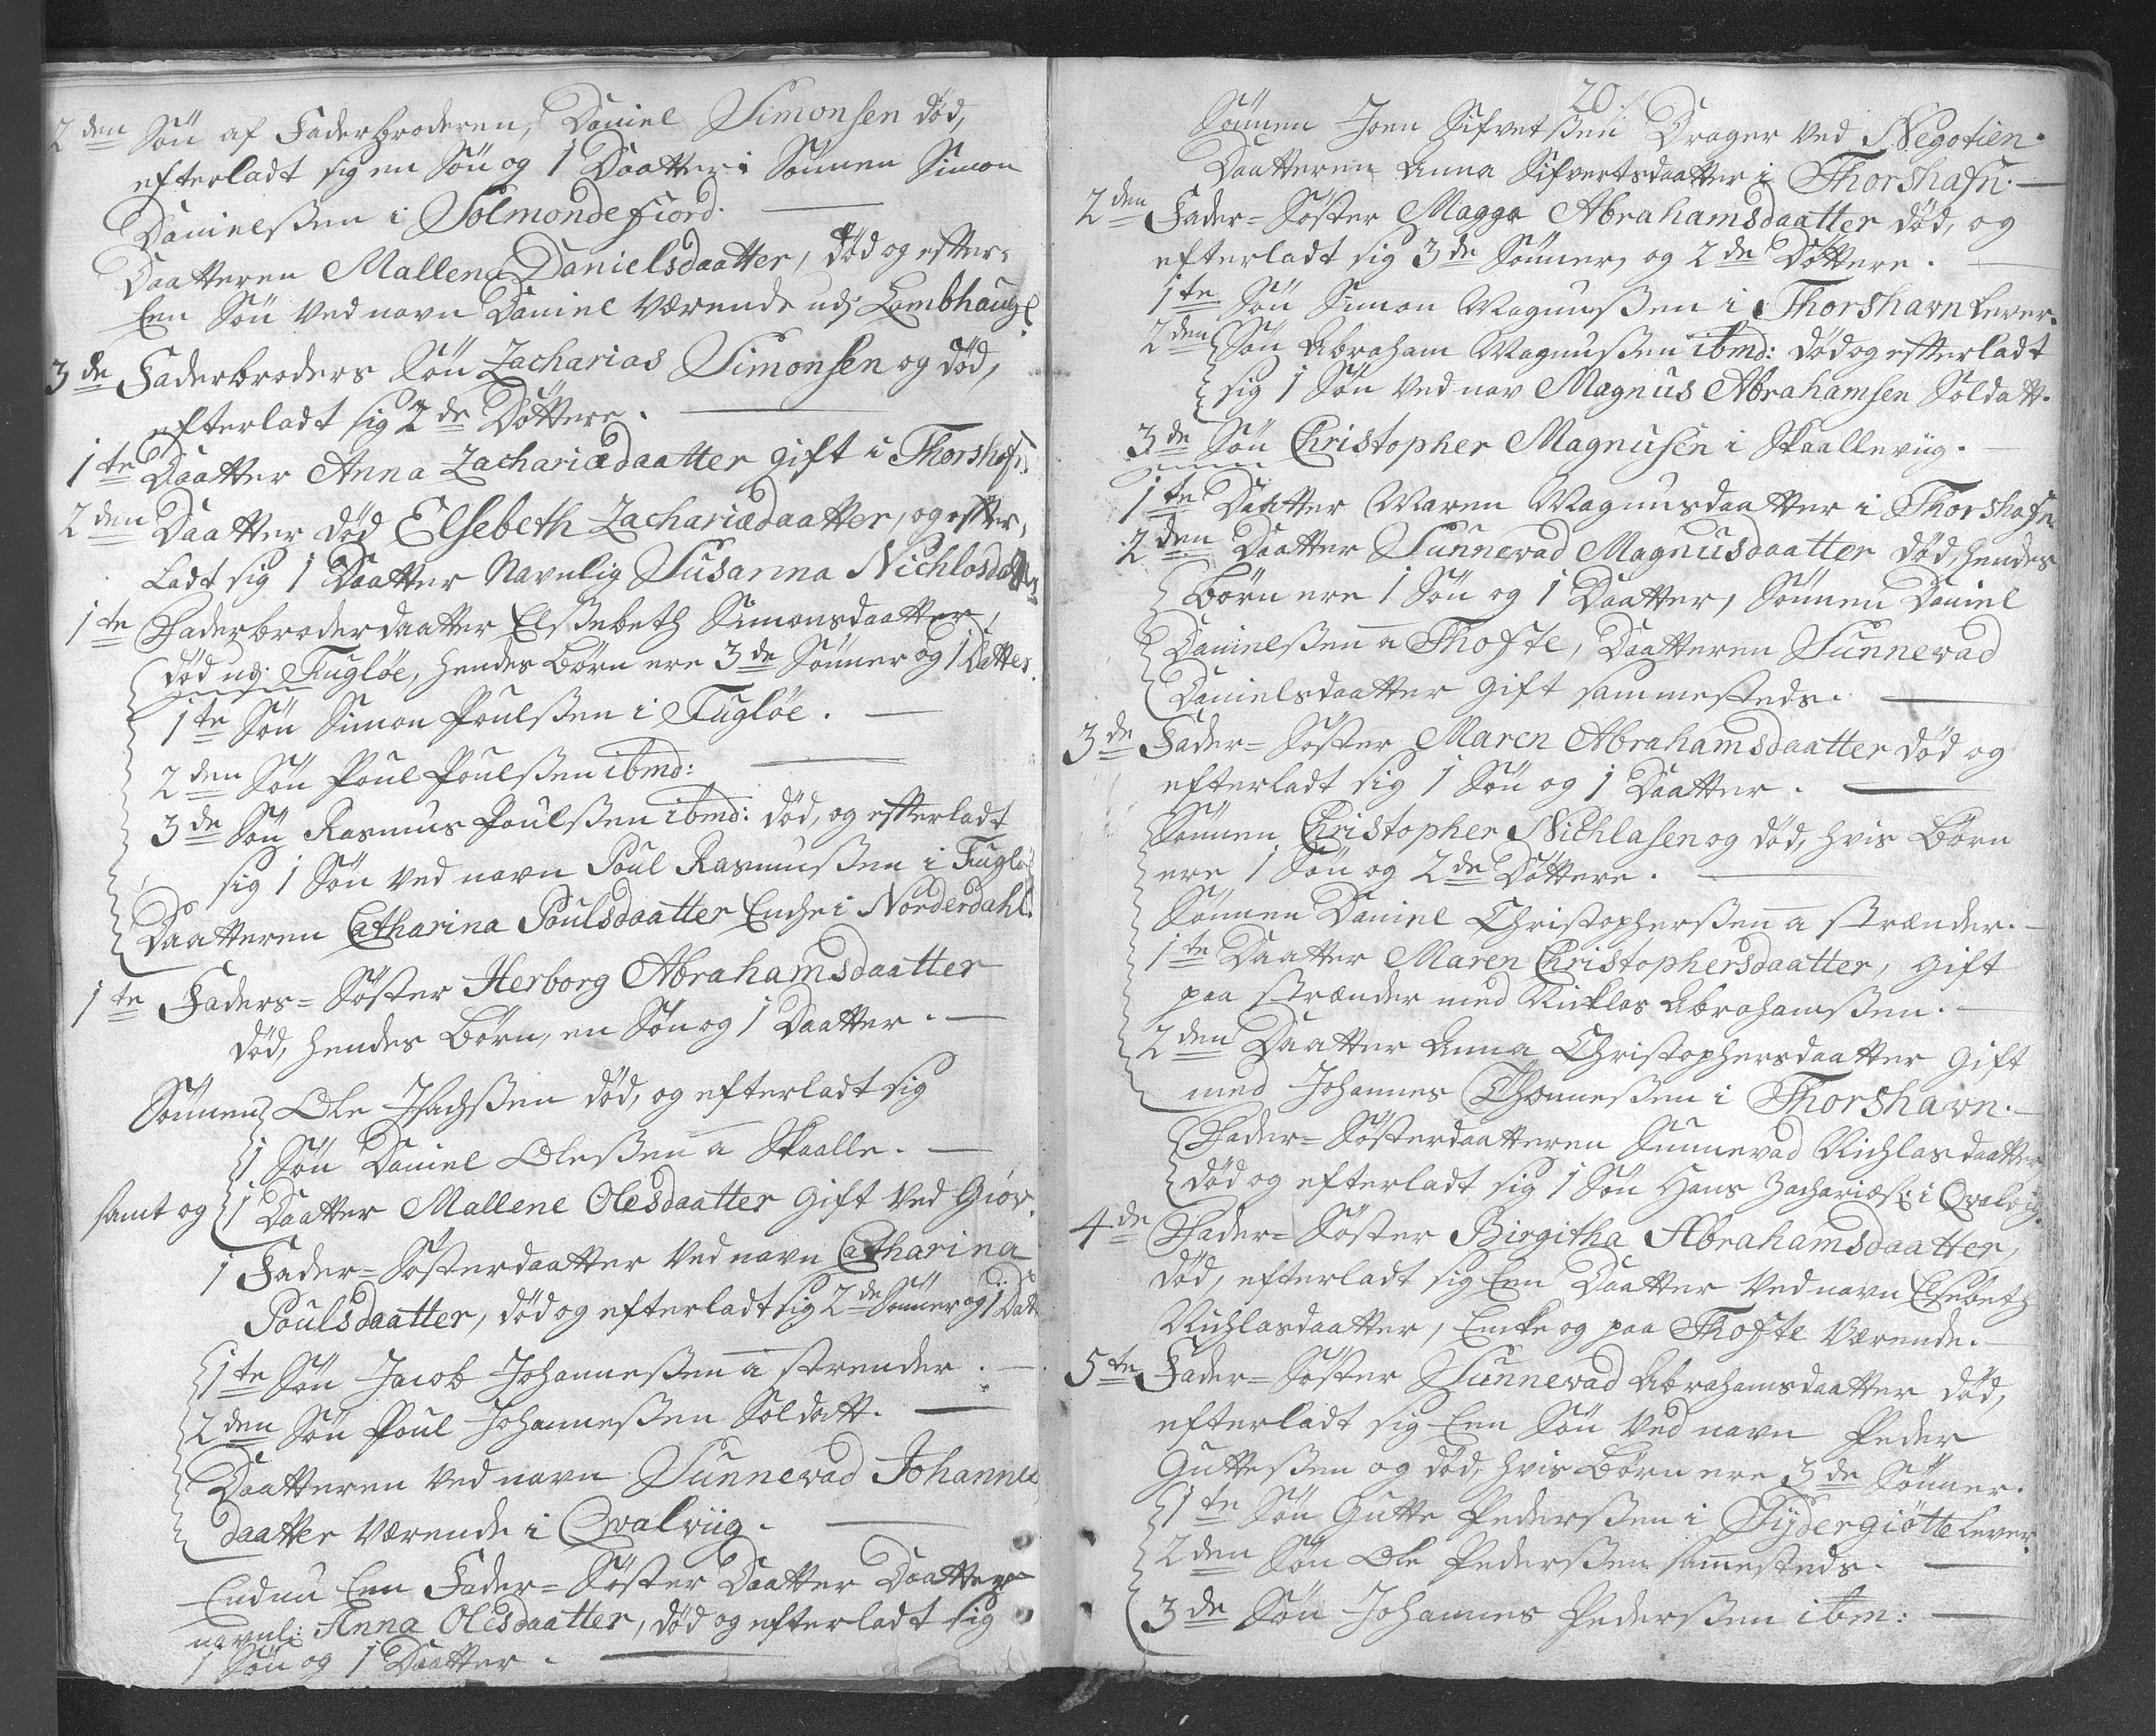 2den Søn af Faderbroderen, Daniel Simonsen død,
efterladt sig en Søn og 1 Daatter: Sønnen Simon
Danielssen i Solmondefiord.
Daatteren Mallena Danielsdaatter, død og efter-
Een Søn ved navn Daniel værende udj Lambhauge
3de Faderbroders Søn Zacharias Simonsen og død,
efterladt sig 2de Døttere.
1te Daatter Anna Zachariædaatter gift i Thorshafn
2den Daatter død Elsebeth Zachariædaatter, og efter-
ladt sig 1 Daatter Navnlig Susanna Nichlosdaatter
1te Faderbroder daatter Elssebeth Simonsdaatter,
død udj Fugløe, hendes Børn ere 3de Sønner og 1 Datter.
1te Søn Simon Poulssen i Fugløe.
2den Søn Poul Poulssen ibmd:
3de Søn Rasmus Poulssen ibmd: død, og efterladt
sig 1 Søn ved navn Poul Rasmussen i Fugløe
Daatteren Catharina Poulsdaatter Enche i Norderdahl.
1te Faders-Søster Herborg Abrahamsdaatter
død, hendes Børn, en Søn og 1 Daatter.
Sønnen Ole Isachssen død, og efterladt sig
1 Søn Daniel Olessen a Skaalle.
samt og 1 Daatter Mallene Olesdaatter gift ved Giov.
1 Fader-Søsterdaatter ved navn Catharina
Poulsdaatter, død og efterladt sig 2de Sønner og 1 Dat
1te Søn Jacob Johannessen a strender.
2den Søn Poul Johannessen Soldatt.
Daatteren ved navn Sunnevad Johannes
daatter værende i Qvalviig.
Endnu Een Fader-Søster Daatter Daatter
navnl: Anna Olesdaatter, død og efterladt sig
1 Søn og 1 Daatter.
20.
Sønnen Joen Sifvertssen Drager ved Negotien.
Daatteren Anna Sifvertsdaatter i Thorshafn.
2den Fader-Søster Magga Abrahamsdaatter død, og
efterladt sig 3de Sønner, og 2de Døttere.
1te Søn Simon Magnussen i Thorshavn lever.
2den Søn Abraham Magnussen ibmd: død og efterladt
sig 1 Søn ved nav Magnus Abrahamsen Soldatt.
3de Søn Christopher Magnusen i Skaalleviig.
1te Daatter Maren Magnusdaatter i Thorshafn
2den Daatter Sunnevad Magnusdaatter død, hendes
Børn ere 1 Søn og 1 Daatter, Sønnen Daniel
Danielssen a Thofte, Daatteren Sunnevad
Danielsdaatter gift sammesteds.
3de Fader-Søster Maren Abrahamsdaatter død og
efterladt sig 1 Søn og 1 Daatter.
Sønnen Christopher Nichlasen og død, hvis Børn
ere 1 Søn og 2de Døttere.
Sønnen Daniel Christopherssen a strænder.
1te Daatter Maren Christophersdaatter, gift
paa strænder med Nicklas Abrahamssen.
2den Daatter Anna Christophersdaatter gift
med Johannes Thomessen i Thorshavn.
Fader-Søsterdaatteren Sunnevad Nichlasdaatter
død og efterladt sig 1 Søn Hans Zachariæs: i Qvalviig.
4de Fader-Søster Birgitha Abrahamsdaatter,
død, efterladt sig Een Daatter ved navn Elsebeth
Nichlasdaatter, Encke og paa Thofte værende.
5te Fader-Søster Sunnevad Abrahamsdaatter død,
efterladt sig Een Søn ved navn Peder
Guttessen og død, hvis Børn ere 3de Sønner.
1te Søn Gutte Pederssen i Sydergiøtte lever.
2den Søn Ole Pederssen samesteds.
3de Søn Johannes Pederssen ibm: